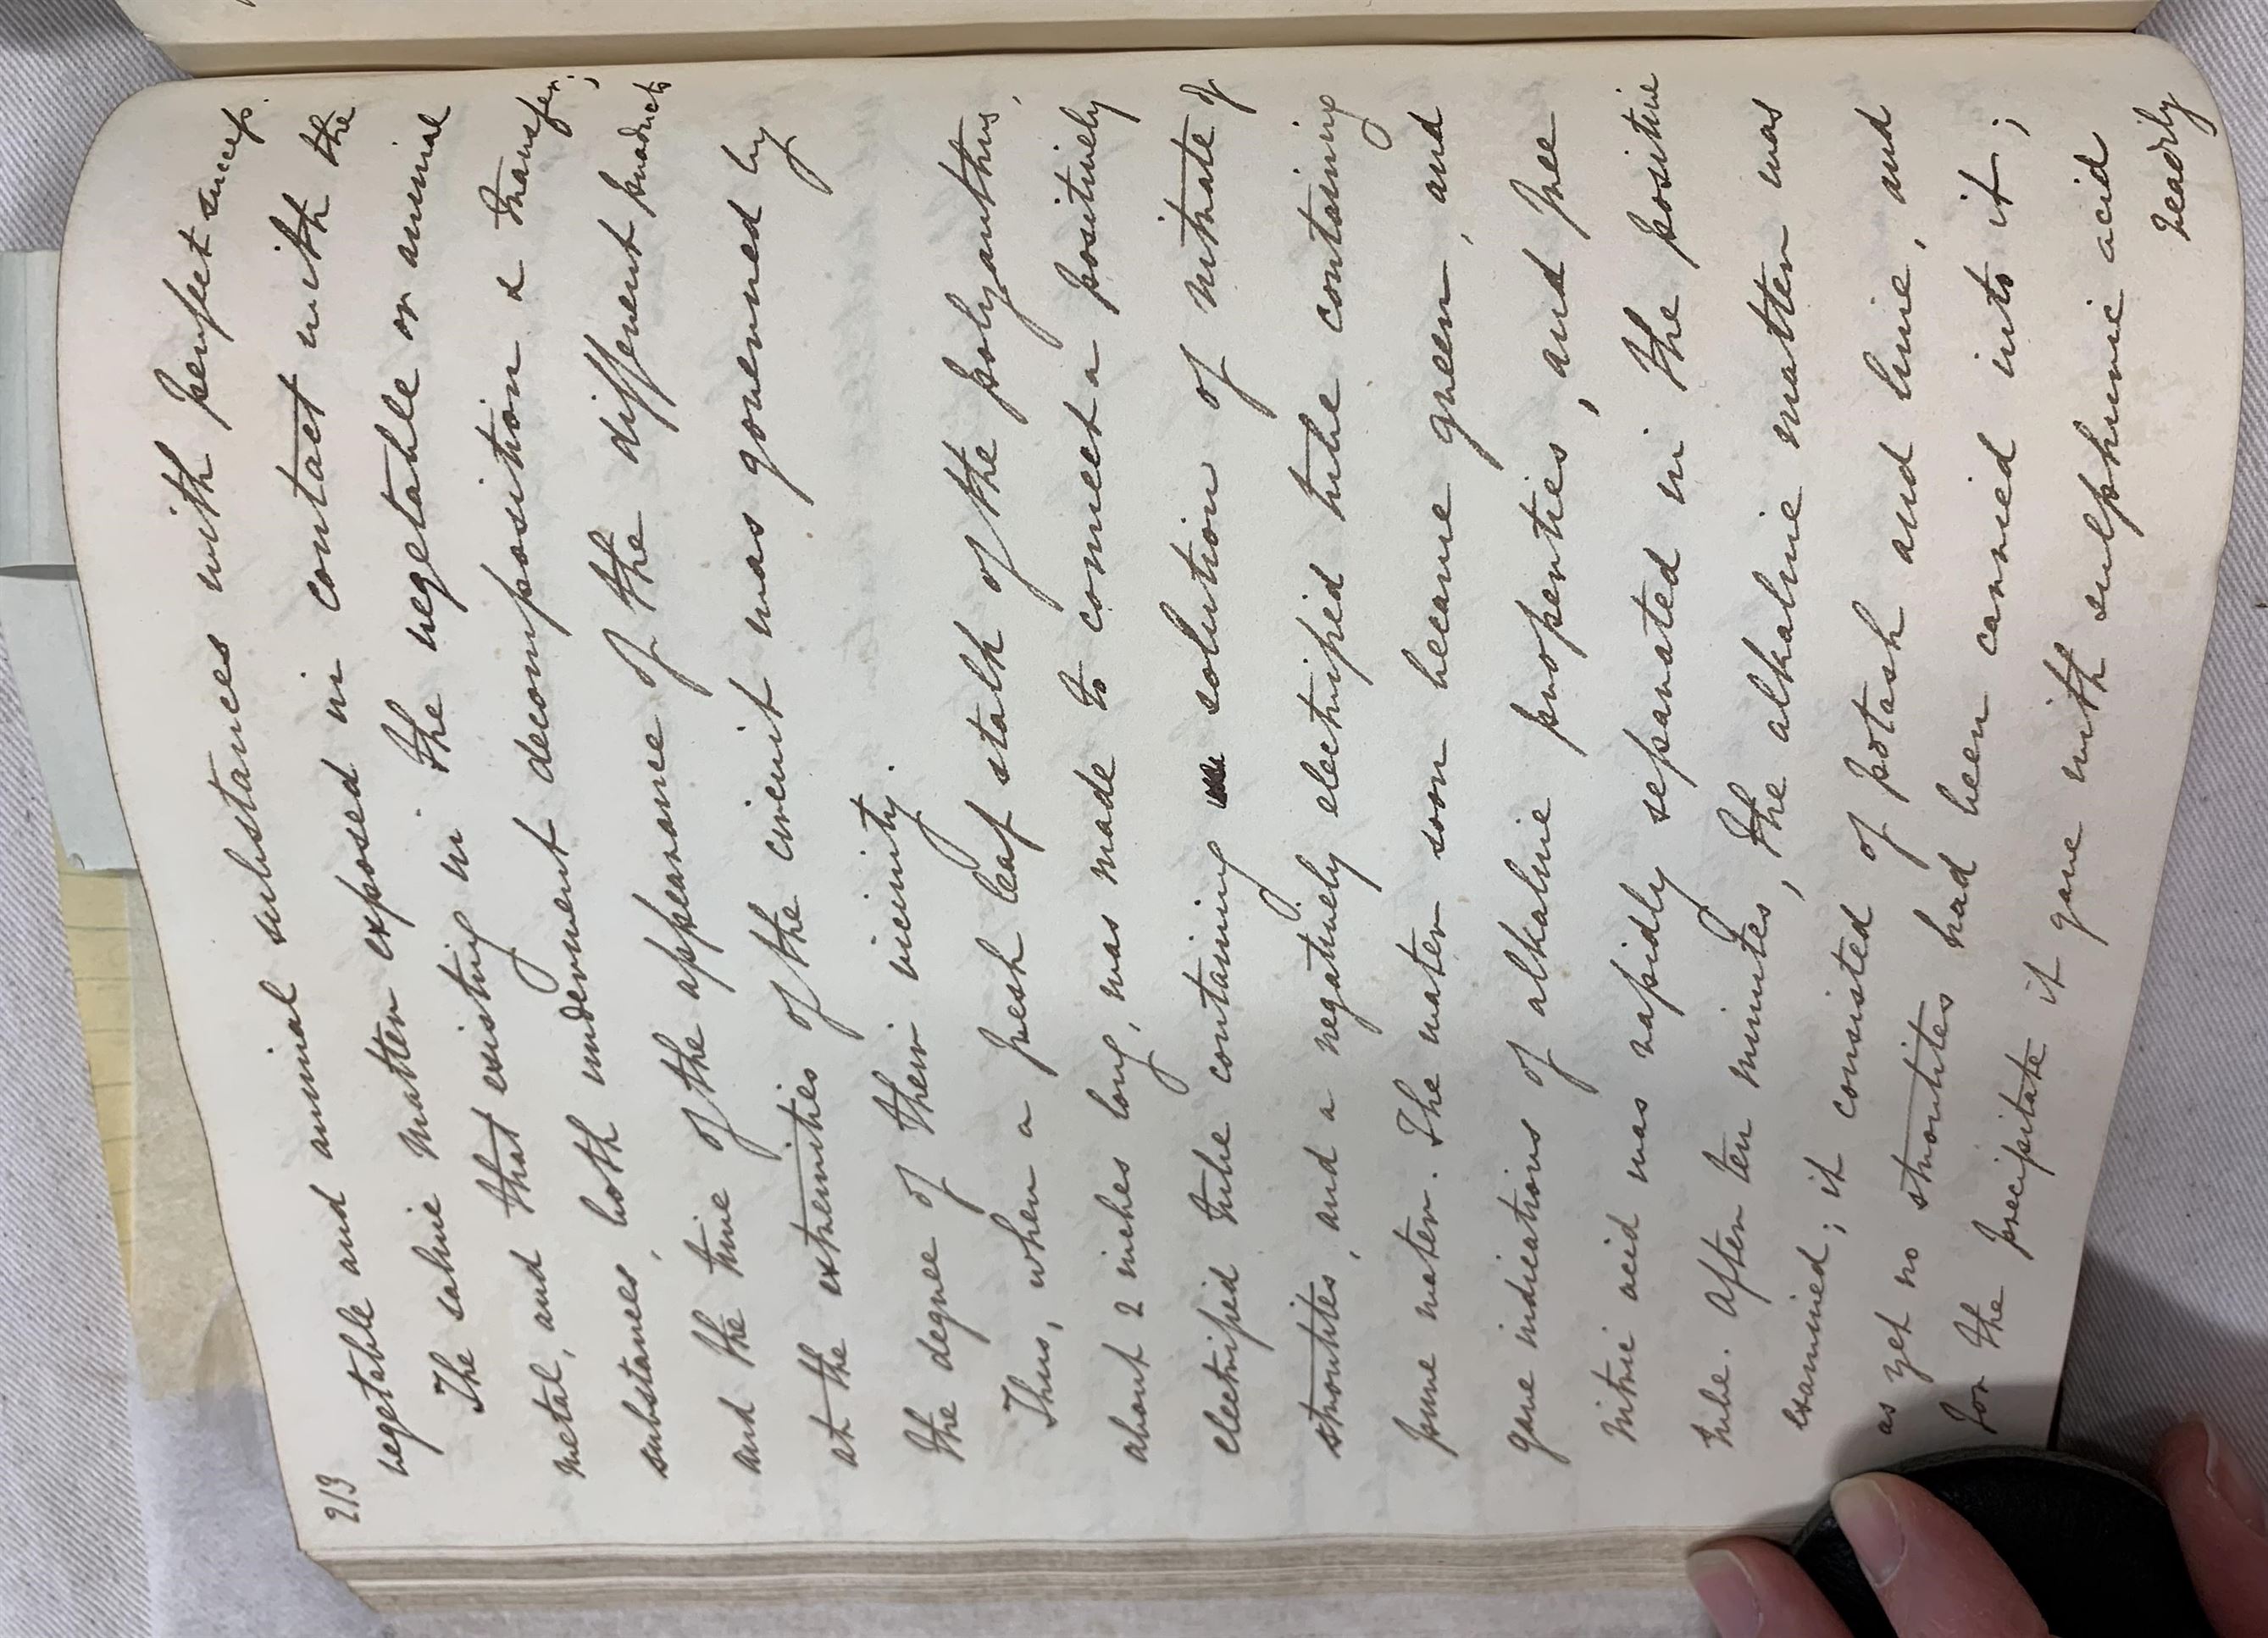 213
vegetable and animal substances with perfect success.
The saline matter exposed in contact with the
metal, and that existing in the vegetable or animal
substances, both underwent decomposition & transfer;
and the time of the appearance of the different products
at the extremities of the circuit was governed by
the degree of their vicinity.
Thus, when a fresh leaf stalk of the polyanthus,
about 2 inches long, was made to connect a positively
electrified tube containing solution of nitrate of
strontites, and a negatively electrified tube containing
pure water. The water soon became green, and
gave indications of alkaline properties, and free
nitric acid was rapidly separated in the positive
tube. After ten minutes, the alkaline matter was
examined; it consisted of potash and lime, and
as yet no strontites had been carried into it;
for the precipitate it gave with sulphuric acid
readily